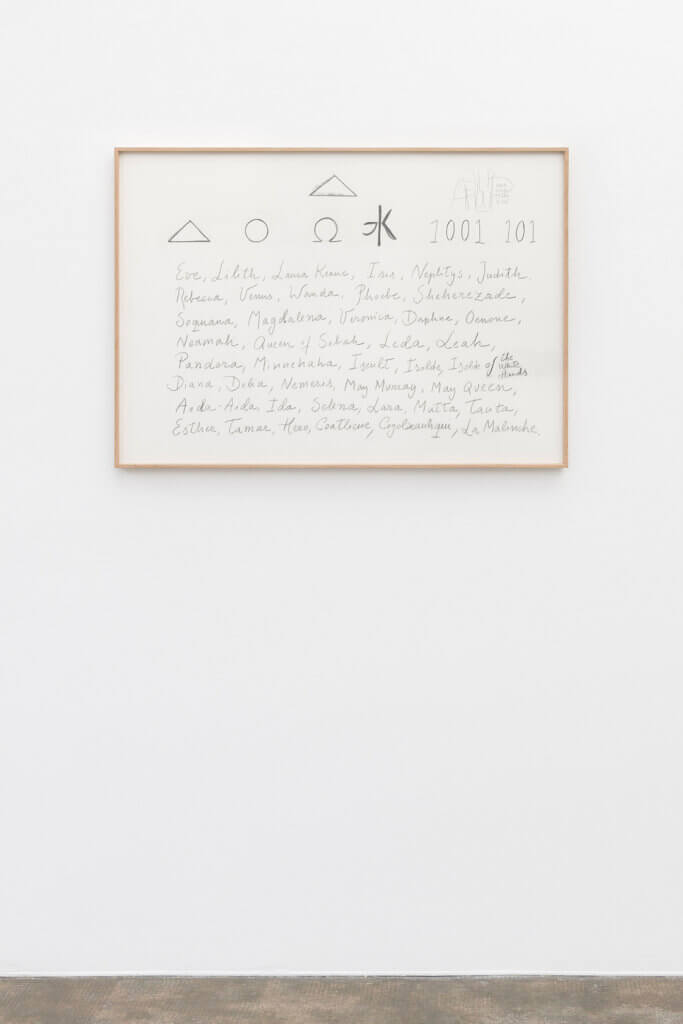 △ ○ Ω 水 1001 101
Eve, Lilith, Laura Isis, Nephtys, Judith
Rebecca, Venus, Wanda, Phoebe, Sheherezade,
Sequana, Magdalena, Veronica, Daphne, Oenone,
Naamah, Queen of Sebah, Leda, Leah,
Pandora, Minnehaha, Iseult, Isolde, Isolde of the White Hands
Diana, Nemesis, May Murray, May Queen,
Aida-Aida, Ida, Selena, Lara,
Esther, Tamar, Hero, Coatlicue, La Malinche.